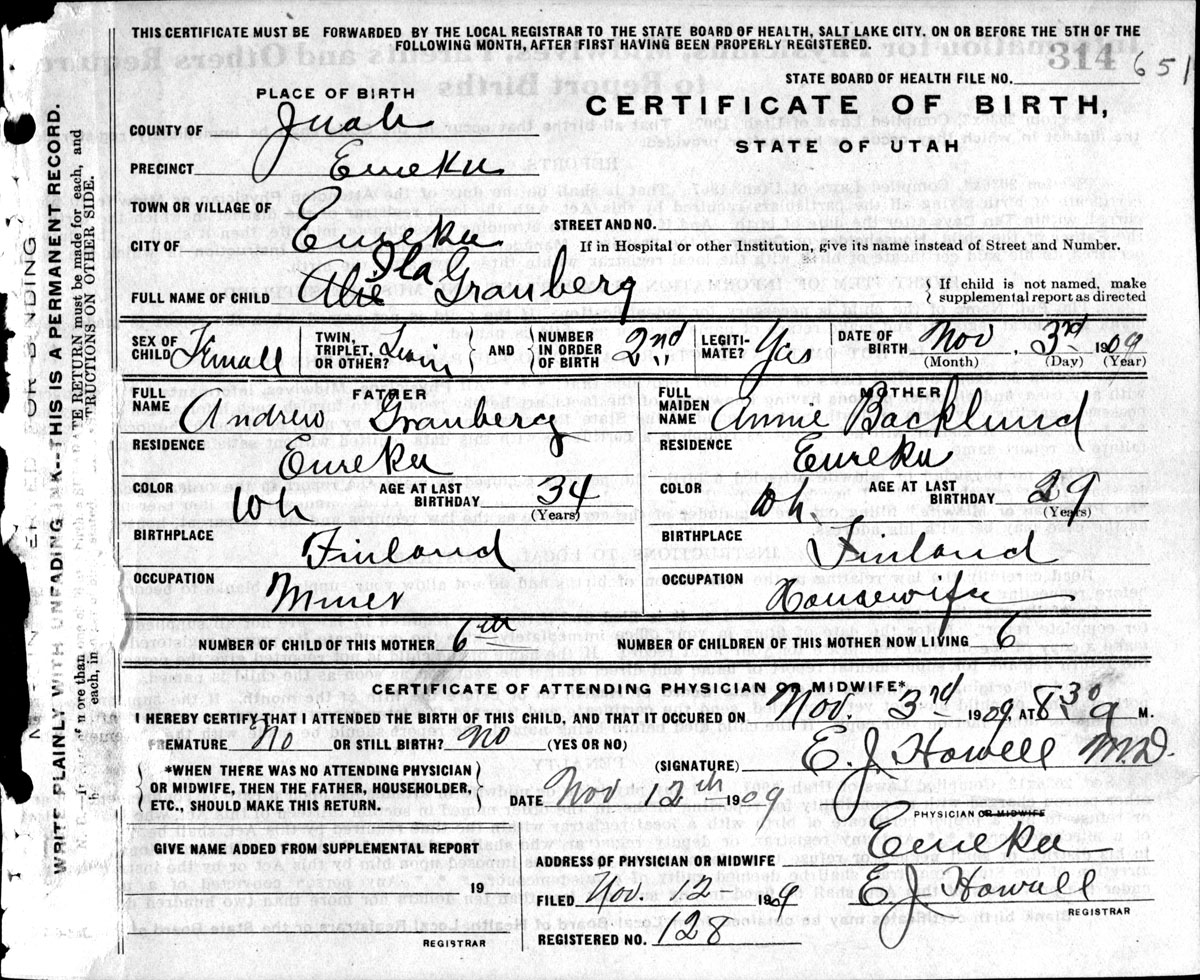 THIS CERTIFICATE MUST BE FORWARDED BY THE LOCAL REGISTRAR TO THE STATE BOARD OF HEALTH, SALT LAKE CITY. ON OR BEFORE THE 5TH OF THE
FOLLOWING MONTH, AFTER FIRST HAVING BEEN PROPERLY REGISTERED.
314 651
STATE BOARD OF HEALTH FILE NO.
PLACE OF BIRTH
CERTIFICATE OF BIRTH,
STATE OF UTAH
COUNTY OF Juab
PRECINCT Eureka
TOWN OR VILLAGE OF
STREET AND NO.
CITY OF Eureka
If in Hospital or other Institution, give its name instead of Street and Number.
Ila G
FULL NAME OF CHILD Granberg
If child is not named, make
supplemental report as directed
SEX OF CHILD Female
TWIN, TRIPLET, OR OTHER? Twin
AND NUMBER IN ORDER OF BIRTH 2nd
LEGITIMATE? Yas
DATE OF BIRTH Nov, 3rd 1909
(Month) (Day) (Year)
FATHER
FULL NAME Andrew Granberg
RESIDENCE Eureka
COLOR Wh AGE AT LAST BIRTHDAY 34
(Years)
BIRTHPLACE Finland
OCCUPATION Miner
MOTHER
FULL MAIDEN NAME Annie Backlund
RESIDENCE Eureka
COLOR Wh AGE AT LAST BIRTHDAY 29
(Years)
BIRTHPLACE Finland
OCCUPATION Housewife
NUMBER OF CHILD OF THIS MOTHER 6th NUMBER OF CHILDREN OF THIS MOTHER NOW LIVING 6
CERTIFICATE OF ATTENDING PHYSICIAN OR MIDWIFE*
I HEREBY CERTIFY THAT I ATTENDED THE BIRTH OF THIS CHILD, AND THAT IT OCCURED ON Nov. 3rd 1909, AT 8 30 a M.
PREMATURE No OR STILL BIRTH? No (YES OR NO)
(SIGNATURE) E. J. Howell M.D.
*WHEN THERE WAS NO ATTENDING PHYSICIAN
OR MIDWIFE, THEN THE FATHER, HOUSEHOLDER,
ETC., SHOULD MAKE THIS RETURN.
DATE Nov 12th 1909
PHYSICIAN OR MIDWIFE
GIVE NAME ADDED FROM SUPPLEMENTAL REPORT
19
REGISTRAR
ADDRESS OF PHYSICIAN OR MIDWIFE Eureka
FILED Nov. 12- 1909 E. J. Howell
REGISTRAR
REGISTERED NO. 128
WRITE PLAINLY WITH UNFADING INK--THIS IS A PERMANENT RECORD.